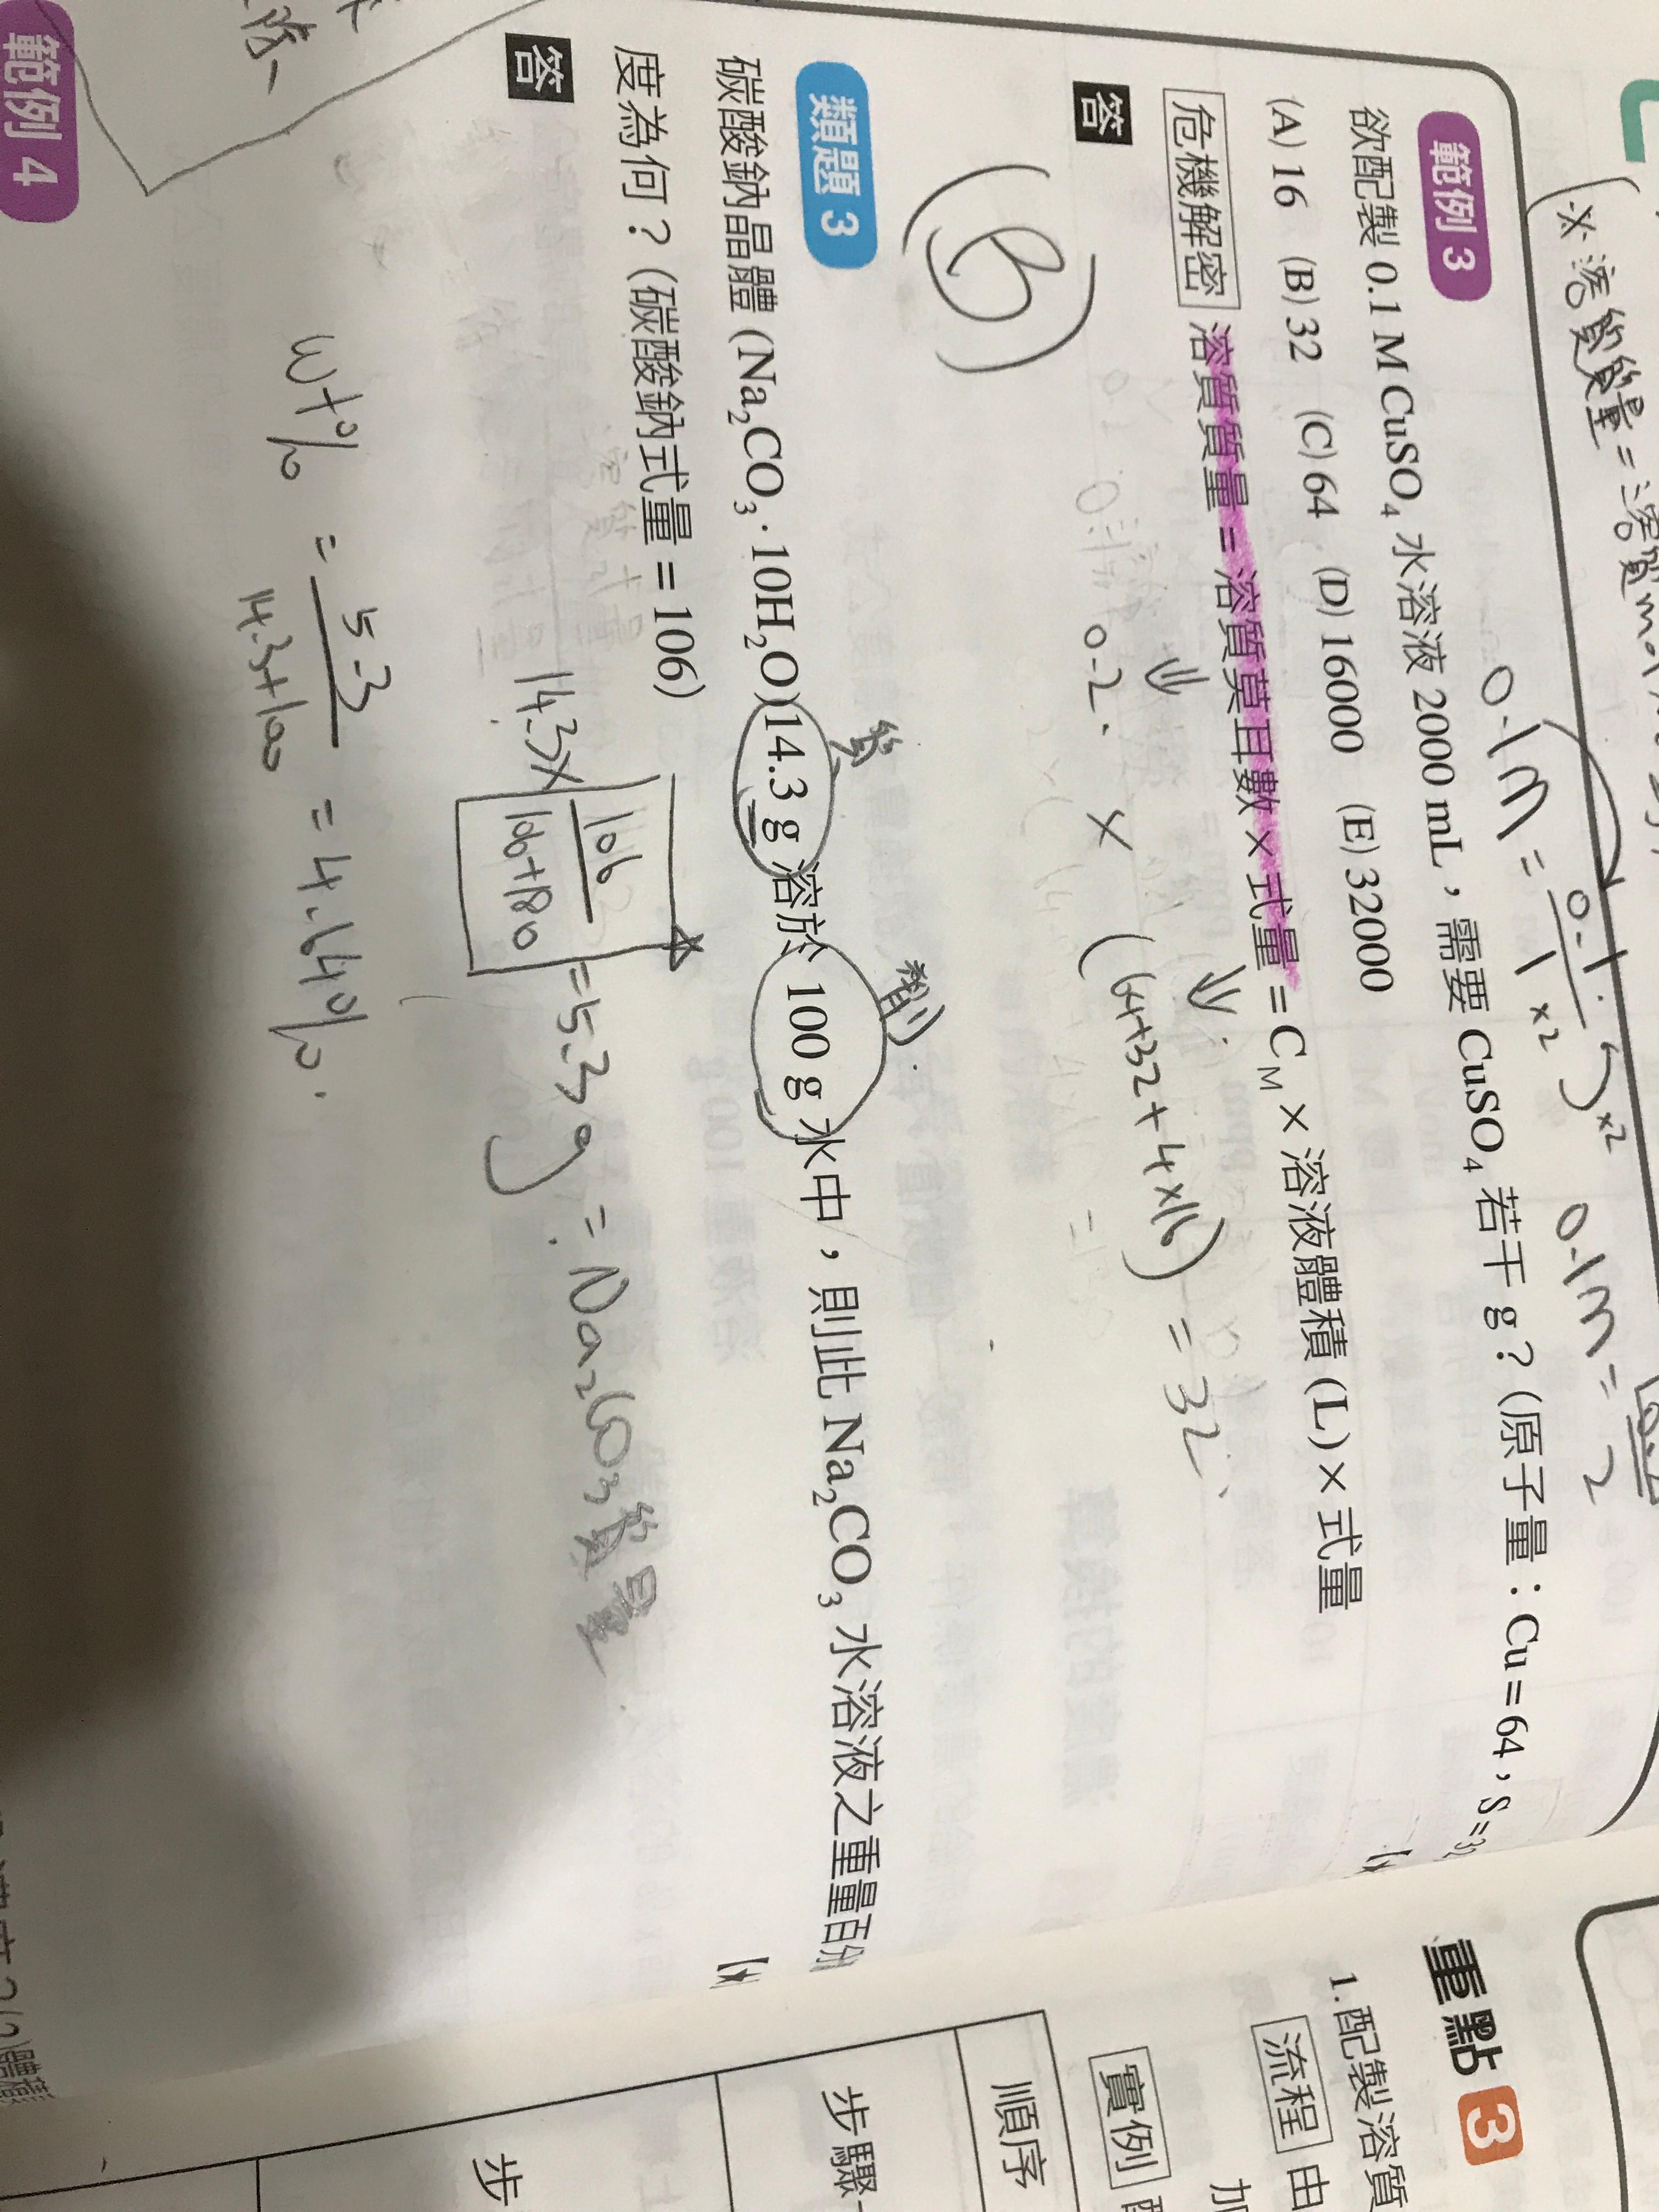 ※溶質質量 = 溶質mol
範例 3
0.1M = 0.1 / 1 ×2 ×2
0.1M = 2
欲配製 0.1 M CuSO₄ 水溶液 2000 mL，需要 CuSO₄ 若干 g？(原子量：Cu = 64，S = 32
(A) 16 (B) 32 (C) 64 (D) 16000 (E) 32000
危機解密 溶質質量 = 溶質莫耳數 × 式量 = C_M × 溶液體積 (L) × 式量
答
0.2 × (64+32+4×16) = 32
(B)
類題 3
質 劑
碳酸鈉晶體 (Na₂CO₃·10H₂O)14.3 g 溶於 100 g 水中，則此 Na₂CO₃ 水溶液之重量百分
度為何？(碳酸鈉式量 = 106)
答
14.3× 106 / 106+180 = 5.3 g = Na₂CO₃質量
wt% = 5.3 / 14.3+100 = 4.64%.
範例 4
重點 3
1.配製溶質
流程 由
加
實例
順序
步驟
步